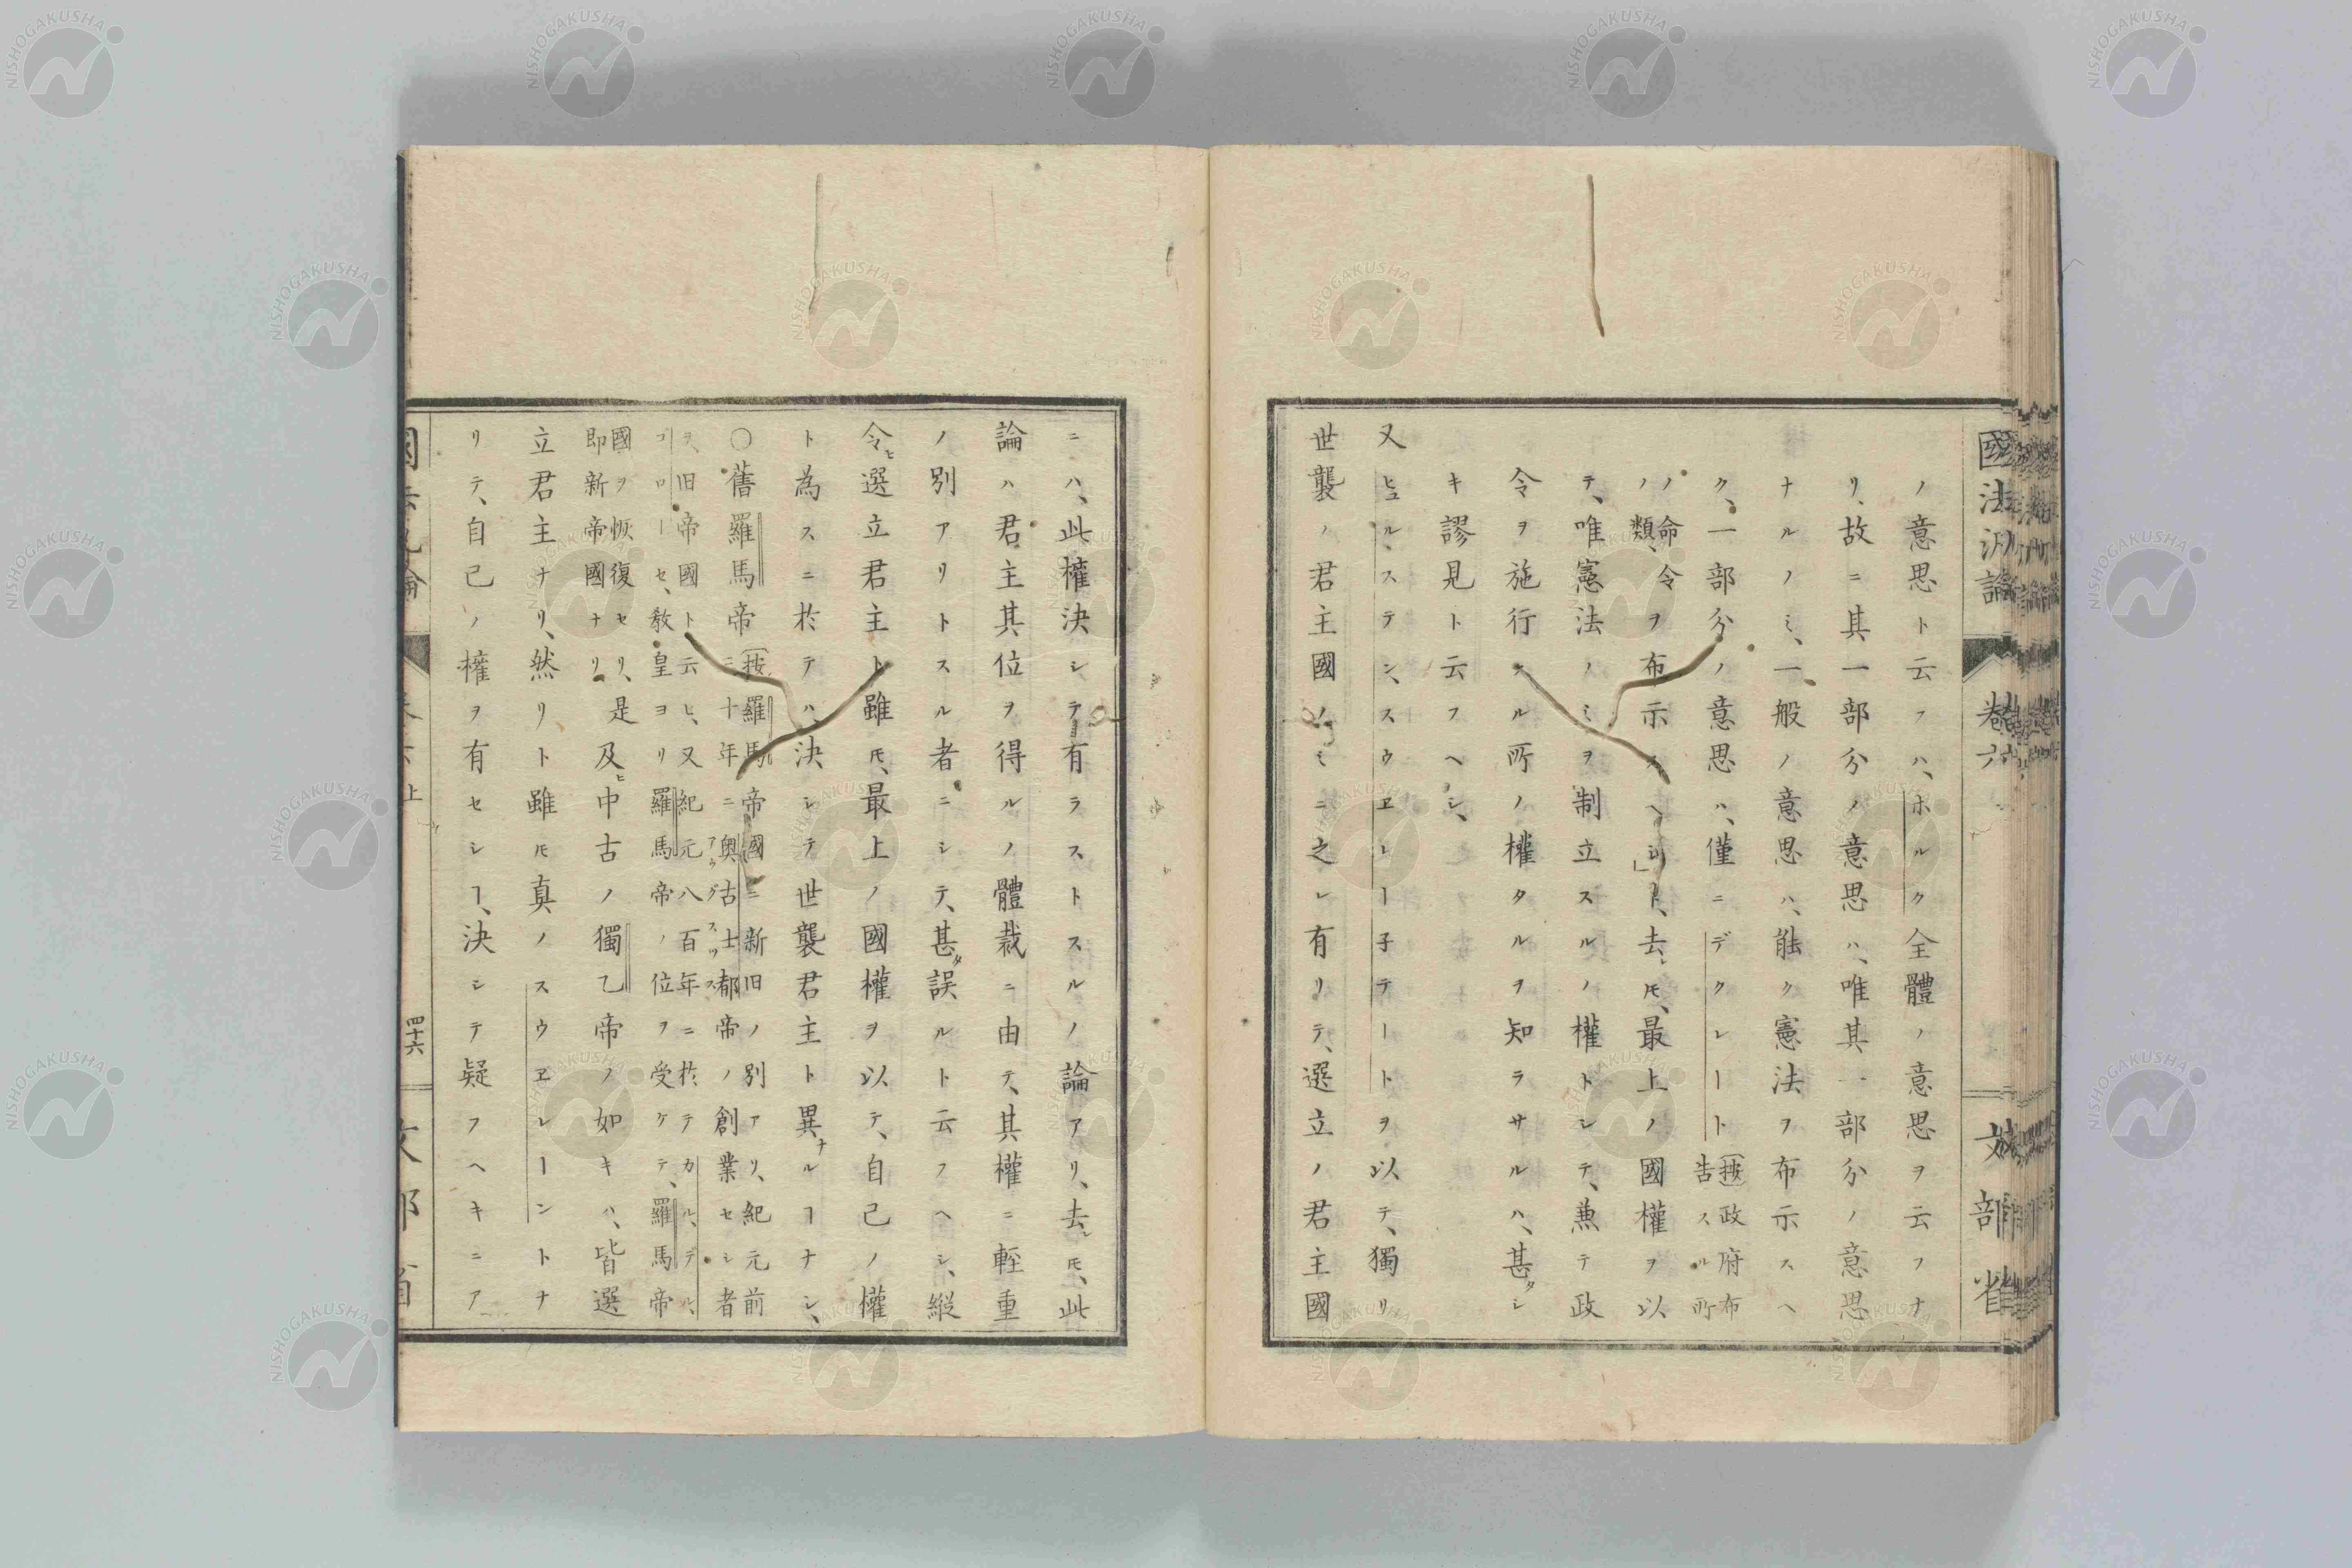 國法汎論
卷六
文部省
ノ意思ト云フハ、ホルク全體ノ意思ヲ云フナ
リ、故ニ其一部分ノ意思ハ、唯其一部分ノ意思
ナルノミ、一般ノ意思ハ、能ク憲法ヲ布示スヘ
ク、一部分ノ意思ハ、僅ニデクレート(按政府布告スル所
ノ命令ノ類、ヲ布示スヘシ」ト、去レ𪜈、最上ノ國權ヲ以
テ、唯憲法ノミヲ制立スルノ權トシテ、兼テ政
令ヲ施行スル所ノ權タルヲ知ラサルハ、甚タシ
キ謬見ト云フヘシ、
又ヒュル、ステン、スウヱレー子テートヲ以テ、獨リ
世襲ノ君主國ノミニ之レ有リテ、選立ノ君主國
ニハ、此權決シテ有ラストスルノ論アリ、去レ𪜈、此
論ハ君主其位ヲ得ルノ體裁ニ由テ、其權ニ輕重
ノ別アリトスル者ニシテ、甚タ誤ルト云フヘシ、縱
令ヒ選立君主ト雖𪜈、最上ノ國權ヲ以テ、自己ノ權
ト為スニ於テハ、決シテ世襲君主ト異ナルヿナシ、
○舊羅馬帝(按羅馬帝國ニ新旧ノ別アリ、紀元前三十年ニ奥古士都帝ノ創業セシ者
ヲ、旧帝國ト云ヒ、又紀元八百年ニ於テカル、デル、
ゴローセ、教皇ヨリ羅馬帝ノ位ヲ受ケテ、羅馬帝
國ヲ恢復セリ、是即新帝國ナリ及ヒ中古ノ獨乙帝ノ如キハ、皆選
立君主ナリ、然リト雖𪜈真ノスウヱレーントナ
リテ、自己ノ權ヲ有セシヿ、決シテ疑フヘキニア
上
四十六
NISHOGAKUSHA